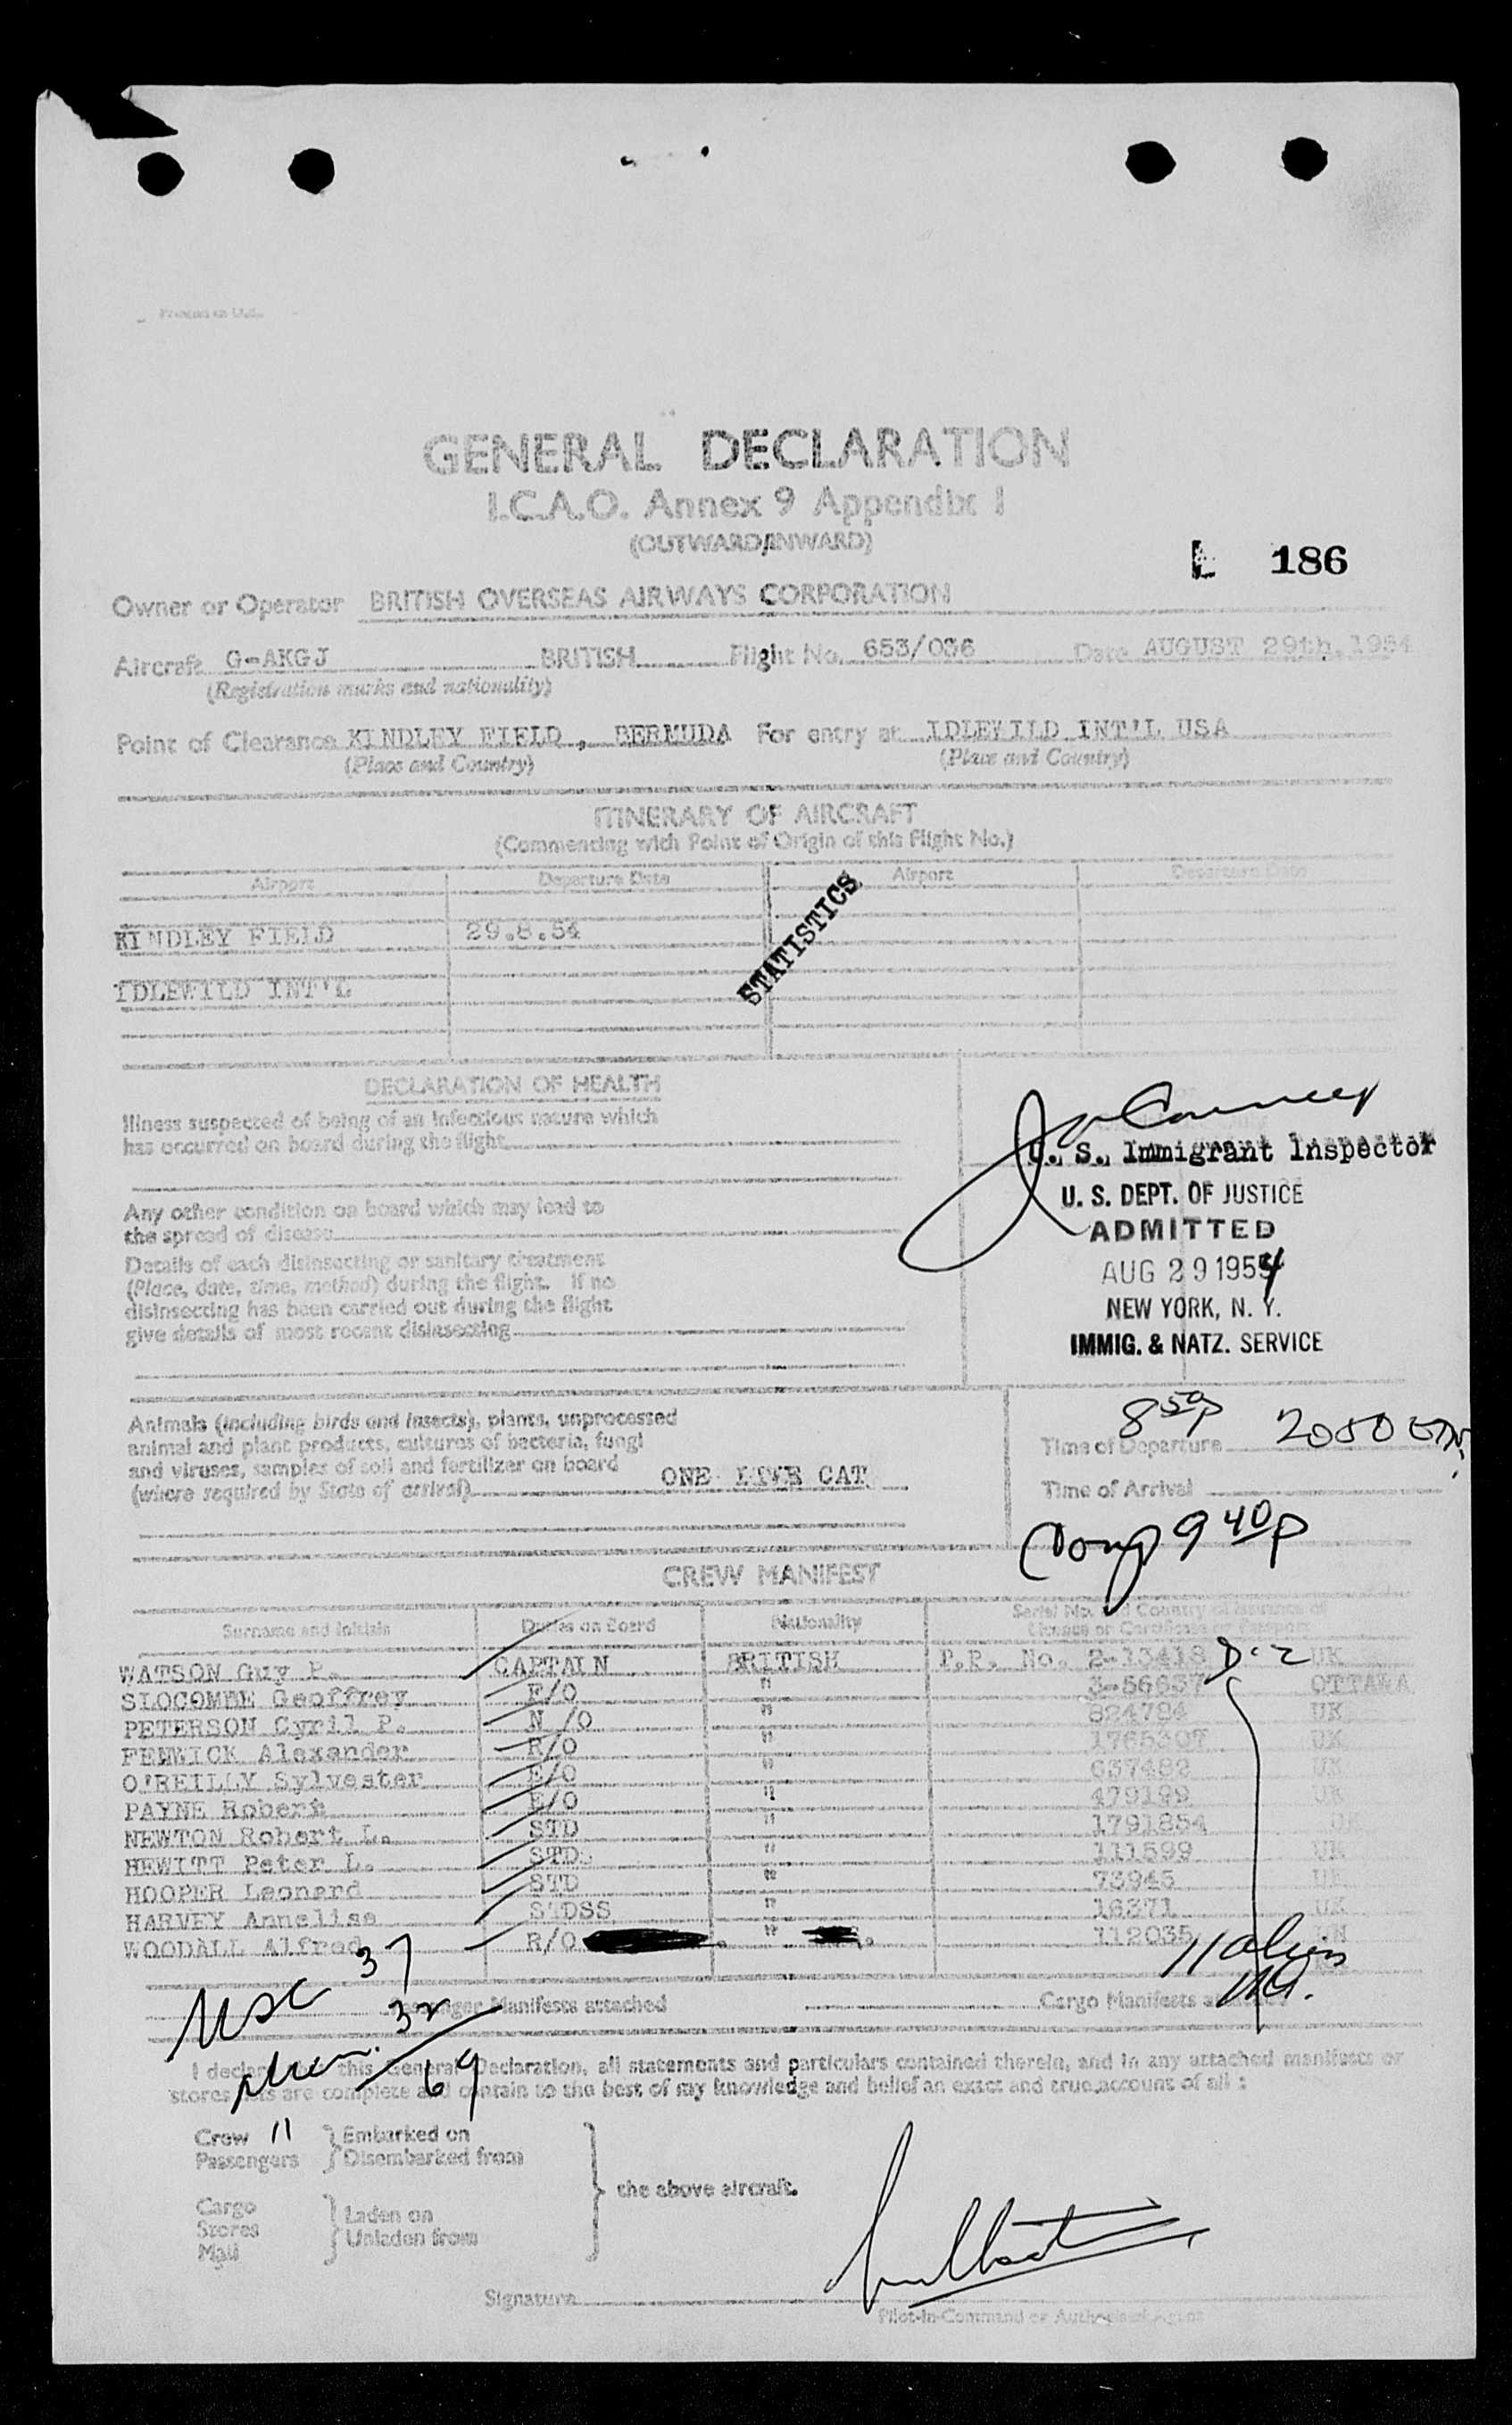 Printed in U.K.
GENERAL DECLARATION
I.C.A.O. Annex 9 Appendix I
(OUTWARD/INWARD)
L 186
Owner or Operator BRITISH OVERSEAS AIRWAYS CORPORATION
Aircraft G-AKGJ BRITISH Flight No. 653/036 Date AUGUST 29th, 1954
(Registration marks and nationality)
Point of Clearance KINDLEY FIELD, BERMUDA For entry at IDLEWILD INT'L USA
(Place and Country) (Place and Country)
ITINERARY OF AIRCRAFT
(Commencing with Point of Origin of this Flight No.)
Airport Departure Date Airport Departure Date
STATISTICS
KINDLEY FIELD 29.8.54
IDLEWILD INT'L
DECLARATION OF HEALTH
Illness suspected of being of an infectious nature which
has occurred on board during the flight
Any other condition on board which may lead to
the spread of disease
Details of each disinsecting or sanitary treatment
(Place, date, time, method) during the flight. If no
disinsecting has been carried out during the flight
give details of most recent disinsecting
U. S. Immigrant Inspector
U. S. DEPT. OF JUSTICE
ADMITTED
AUG 29 1954
NEW YORK, N. Y.
IMMIG. & NATZ. SERVICE
Animals (including birds and insects), plants, unprocessed
animal and plant products, cultures of bacteria, fungi
and viruses, samples of soil and fertilizer on board
(where required by State of arrival) ONE LIVE CAT
8 50p
Time of Departure 2050
Time of Arrival
9 40p
CREW MANIFEST
Surname and Initials Duties on Board Nationality Serial No. and Country of Issuance of
License or Certificate or Passport
WATSON Guy P. CAPTAIN BRITISH P.R. No. 2-13418 D-2 UK
SLOCOMBE Geoffrey F/O " 3-56637 OTTAWA
PETERSON Cyril P. N/O " 824784 UK
FENWICK Alexander R/O " 1765307 UK
O'REILLY Sylvester E/O " 657482 UK
PAYNE Robert E/O " 479199 UK
NEWTON Robert L. STD " 1791854 UK
HEWITT Peter L. STD. " 111599 UK
HOOPER Leonard STD " 73945 UK
HARVEY Annelise STDSS " 16371 UK
WOODALL Alfred R/O " 112035 UK
11 aliens
USC 37
32
Passenger Manifests attached Cargo Manifests attached
69
I declare that this General Declaration, all statements and particulars contained therein, and in any attached manifests or
stores lists are complete and contain to the best of my knowledge and belief an exact and true account of all :
Crew 11
Passengers
Embarked on
Disembarked from
the above aircraft.
Cargo
Stores
Mail
Laden on
Unladen from
Signature
Pilot-in-Command or Authorised Agent